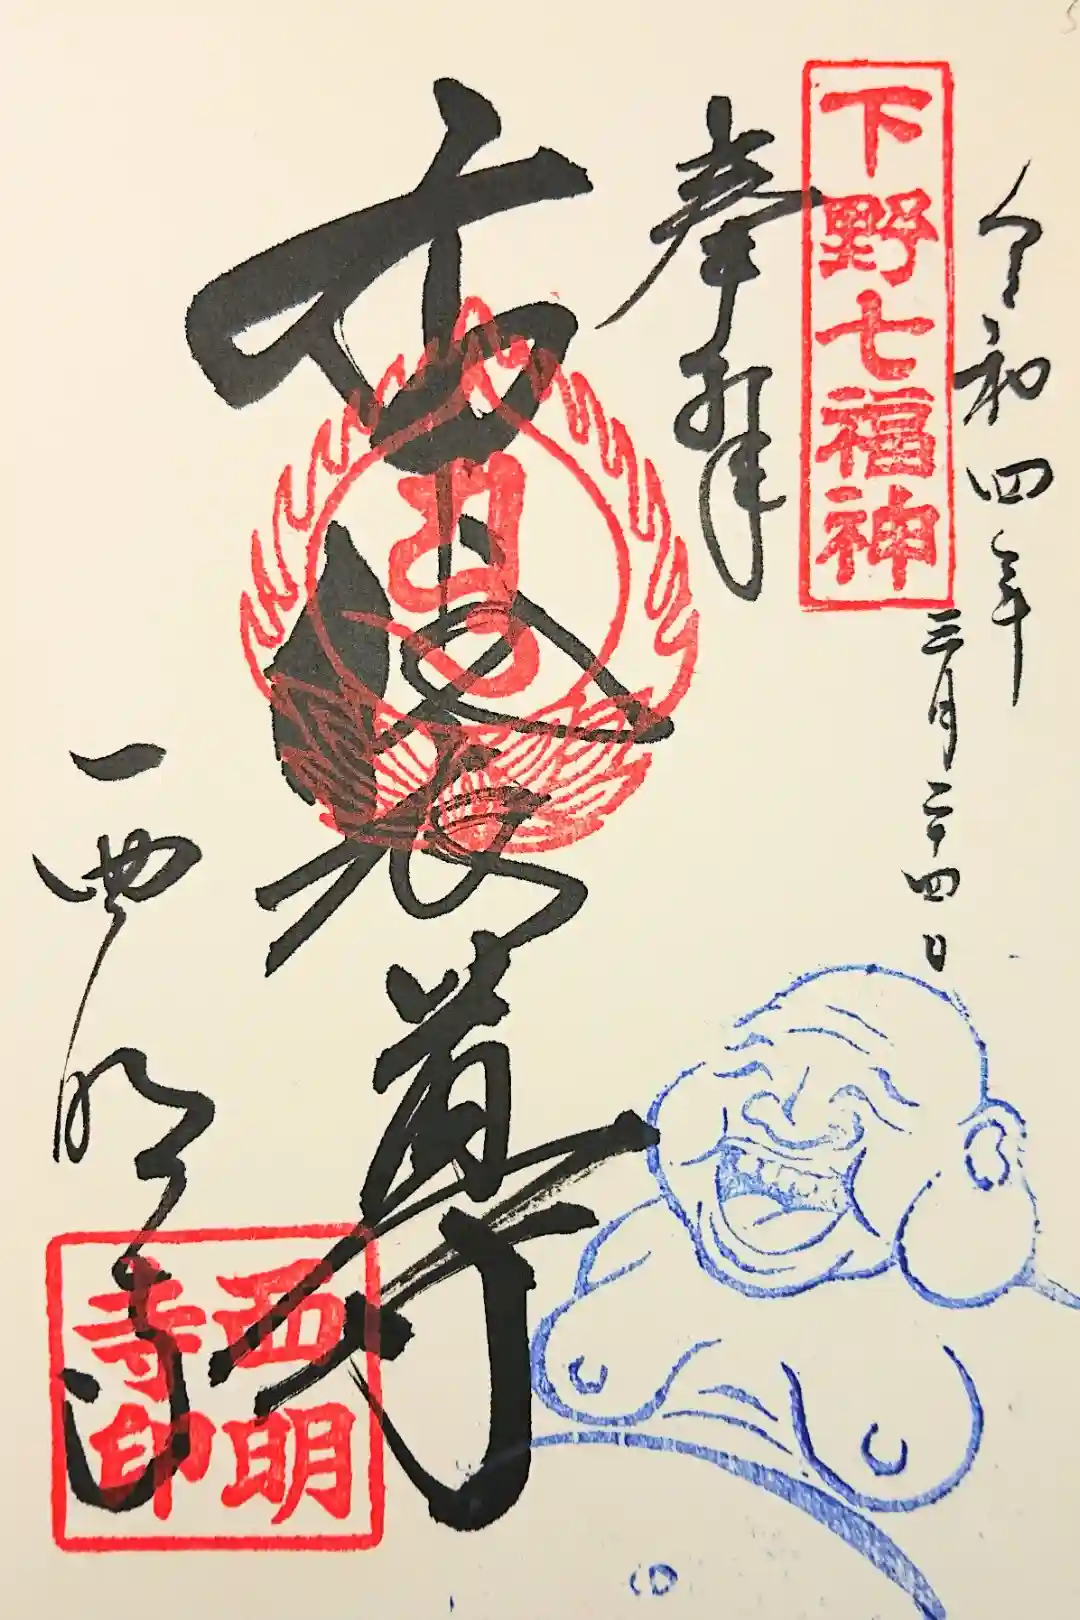 令和四年
三月二十四日
下野七福神
奉拝
布袋尊
西明寺
西明
寺印